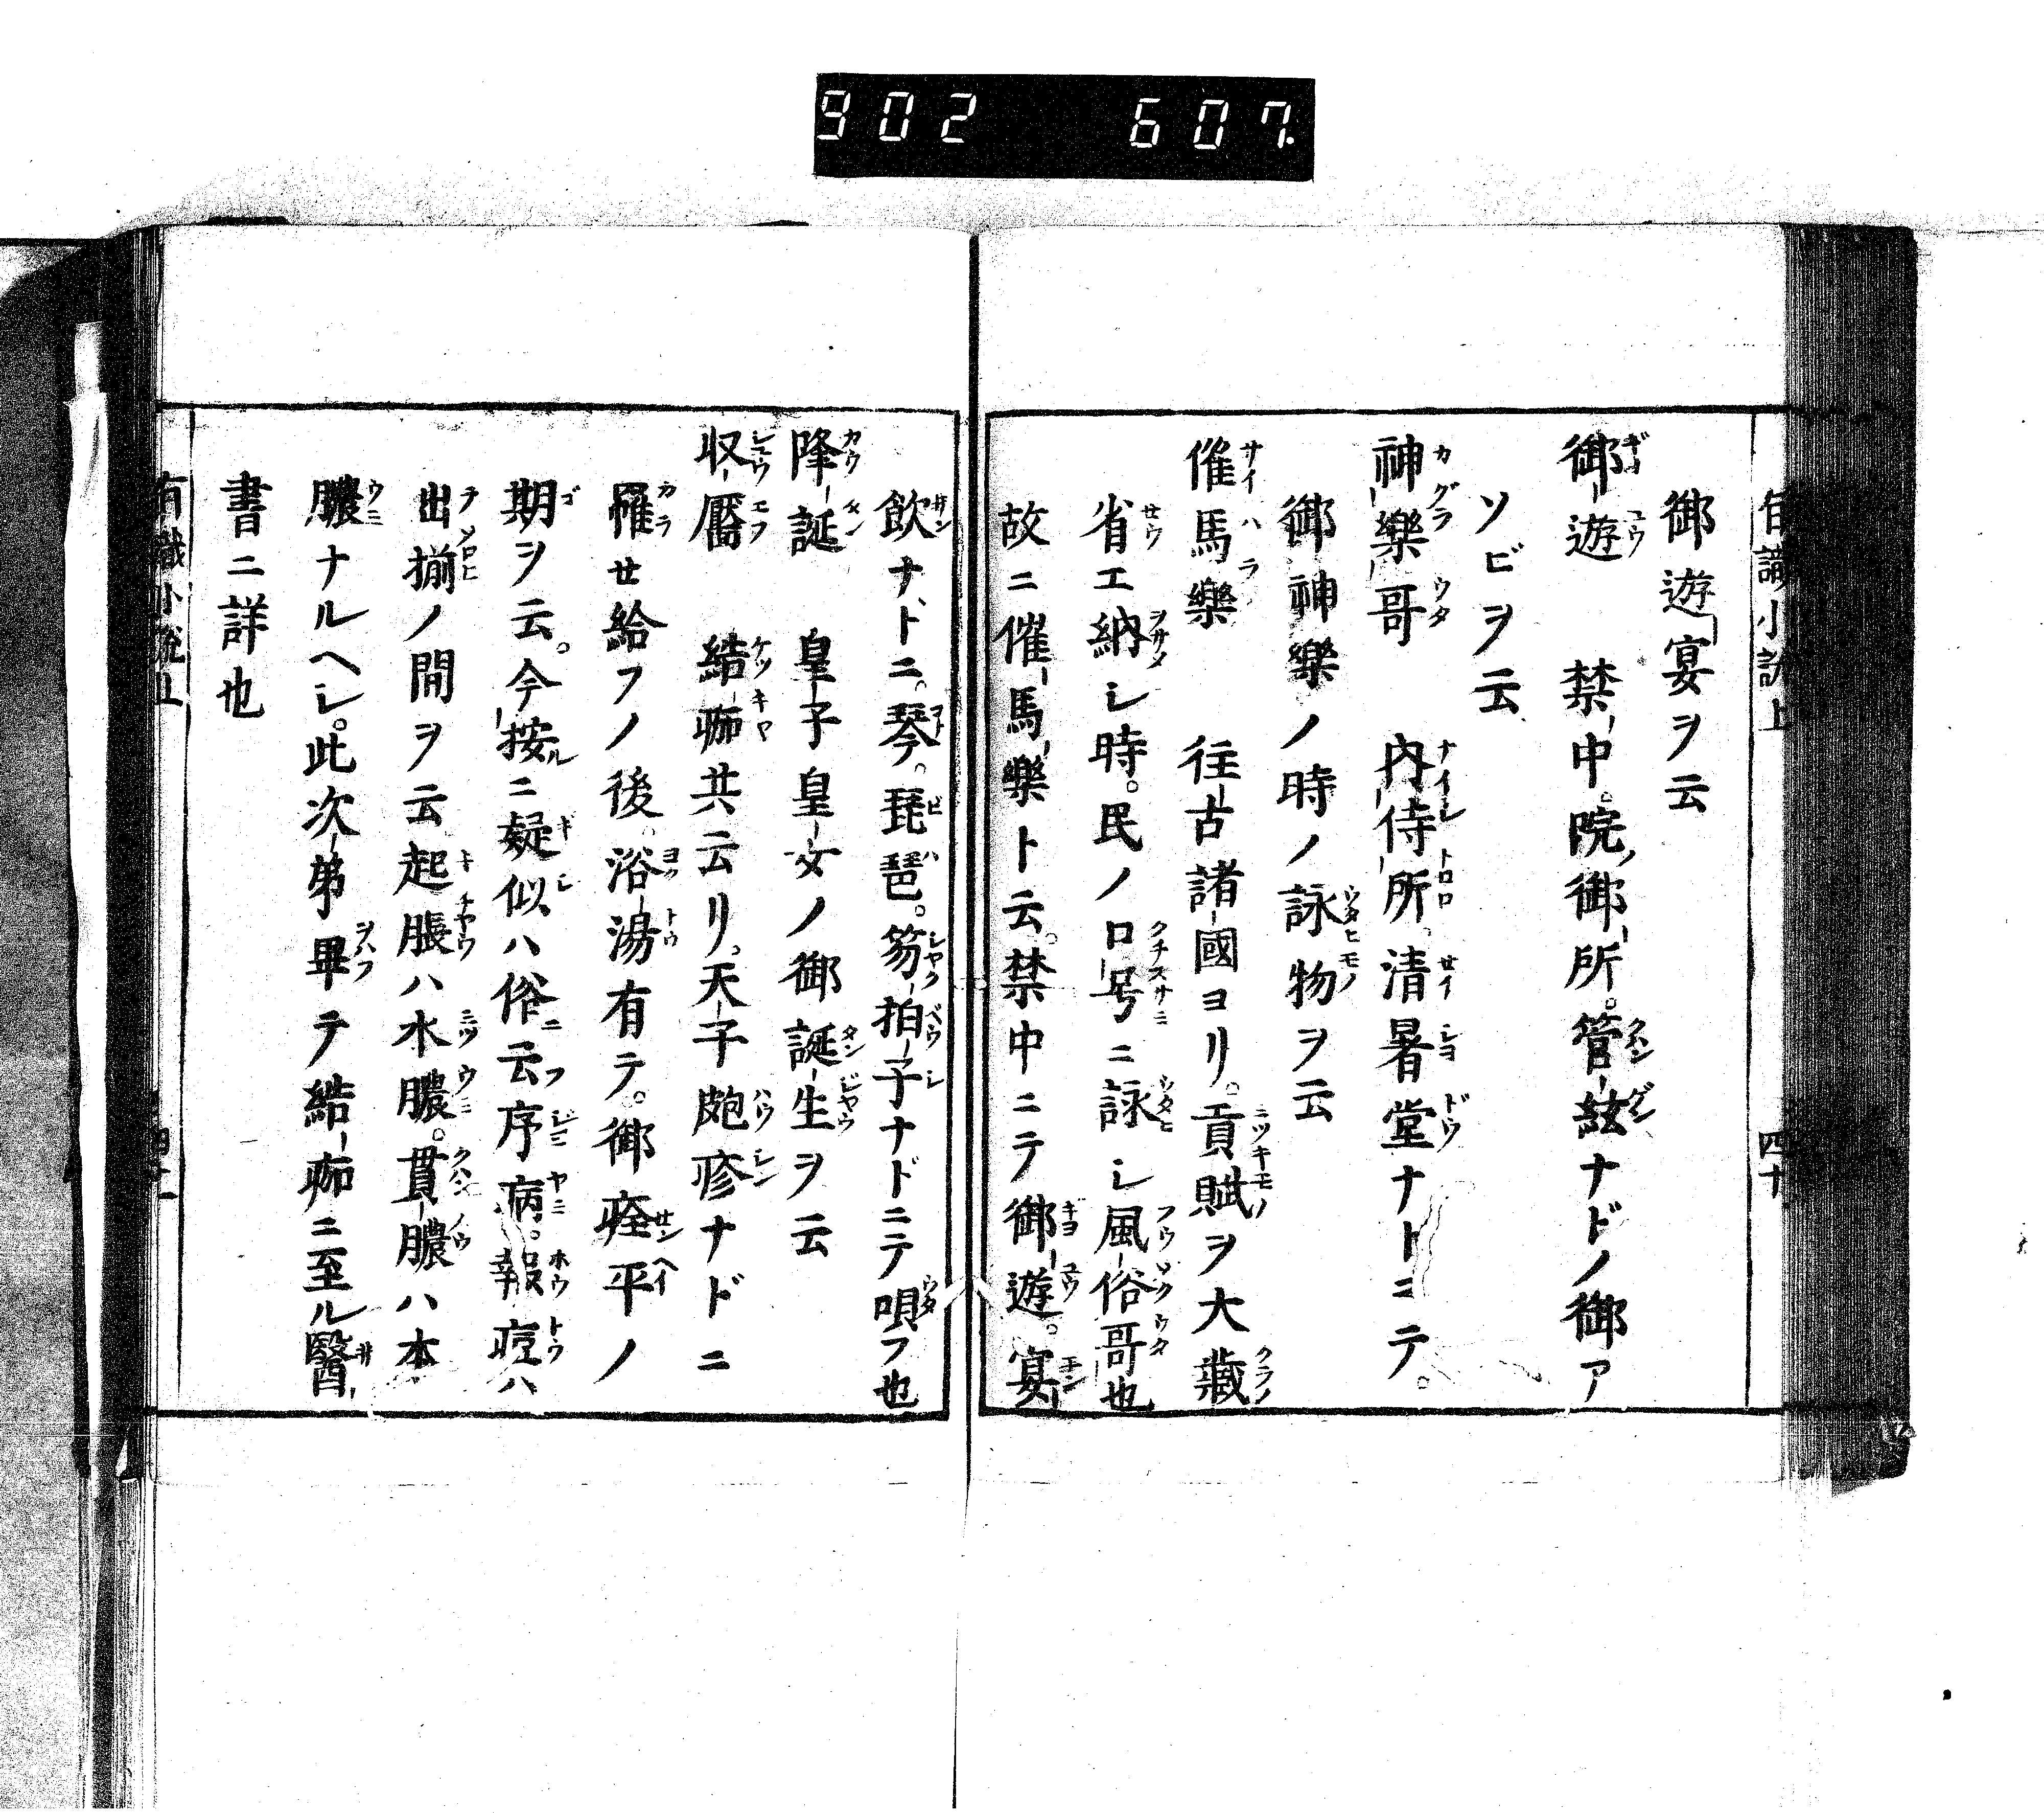 902 607.
有識小說上 四十
御遊宴ヲ云
御遊 禁中。院ノ御所。管絃ナドノ御ア
ソビヲ云
神樂哥 内侍所。清暑堂ナトニテ。
御神樂ノ時ノ詠物ヲ云
催馬樂 往古諸國ヨリ。貢賦ヲ大藏
省エ納シ時。民ノ口号ニ詠シ風俗哥也
故ニ催馬樂ト云。禁中ニテ御遊。宴
飲ナドニ。琴。琵琶。笏拍子ナドニテ唄フ也
降誕 皇子皇女ノ御誕生ヲ云
収靨 結痂共云リ。天子皰疹ナドニ
罹セ給フノ後。浴湯有テ。御痊平ノ
期ヲ云。今按ニ疑似ハ俗ニ云序病。報痘ハ
出揃ノ間ヲ云起脹ハ水膿。貫膿ハ本
膿ナルヘシ。此次弟畢テ結痂ニ至ル醫
書ニ詳也
有識小說上